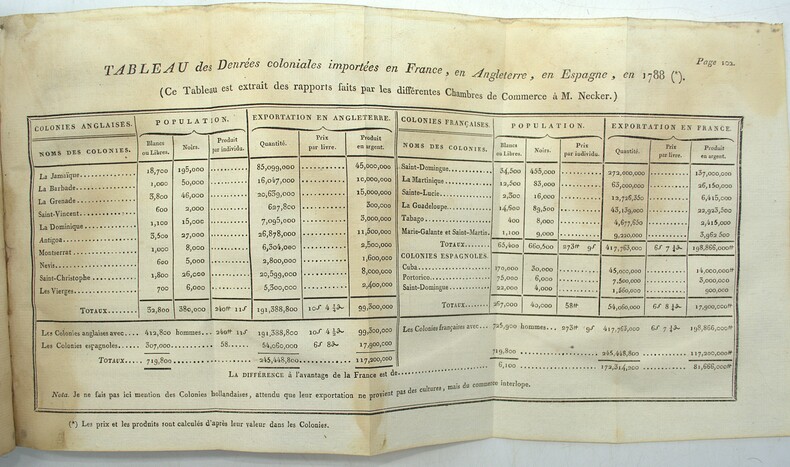 Page 102.
TABLEAU des Denrées coloniales importées en France, en Angleterre, en Espagne, en 1788 (*).
(Ce Tableau est extrait des rapports faits par les différentes Chambres de Commerce à M. Necker.)
COLONIES ANGLAISES. POPULATION. EXPORTATION EN ANGLETERRE.
NOMS DES COLONIES. Blancs ou Libres. Noirs. Produit par individu. Quantité. Prix par livre. Produit en argent.
La Jamaïque 18,700 195,000 85,099,000 45,000,000
La Barbade 1,000 50,000 16,047,000 10,000,000
La Grenade 3,800 46,000 20,639,000 15,000,000
Saint-Vincent 600 2,000 627,800 300,000
La Dominique 1,100 15,000 7,095,000 3,000,000
Antigoa 3,500 27,000 26,878,000 11,500,000
Montserrat 1,000 8,000 6,304,000 2,500,000
Nevis 600 5,000 2,800,000 1,600,000
Saint-Christophe 1,800 26,000 20,599,000 8,000,000
Les Vierges 700 6,000 5,300,000 2,400,000
TOTAUX 32,800 380,000 240tt 11s 191,388,800 10s 4 ½ 99,300,000
COLONIES FRANÇAISES. POPULATION. EXPORTATION EN FRANCE.
NOMS DES COLONIES. Blancs ou Libres. Noirs. Prix par individu. Quantité. Prix par livre. Produit en argent.
Saint-Domingue 34,500 455,000 272,000,000 137,000,000
La Martinique 12,500 83,000 63,000,000 26,150,000
Sainte-Lucie 2,300 16,000 12,726,350 6,415,000
La Guadeloupe 14,600 89,500 43,139,000 22,923,500
Tabago 400 8,000 4,677,650 2,415,000
Marie-Galante et Saint-Martin 1,100 9,000 9,220,000 3,962,500
TOTAUX 65,400 660,500 273tt 9s 417,763,000 198,866,000tt
COLONIES ESPAGNOLES.
Cuba 170,000 30,000 45,000,000 14,000,000tt
Portorico 75,000 6,000 7,500,000 3,000,000
Saint-Domingue 22,000 4,000 1,560,000 900,000
TOTAUX 267,000 40,000 58tt 54,060,000 17,900,000tt
Les Colonies anglaises avec 412,800 hommes 240tt 11s 191,388,800 10s 4 ½ 99,300,000
Les Colonies espagnoles 307,000 58 54,060,000 17,900,000
TOTAUX 719,800 245,448,800 117,200,000
Les Colonies françaises avec 725,900 hommes 273tt 9s 417,763,000 198,866,000tt
719,800 245,448,800 117,200,000tt
LA DIFFÉRENCE à l'avantage de la France est de 6,100 172,314,200 81,666,000tt
Nota. Je ne fais pas ici mention des Colonies hollandaises, attendu que leur exportation ne provient pas des cultures, mais du commerce interlope.
(*) Les prix et les produits sont calculés d'après leur valeur dans les Colonies.